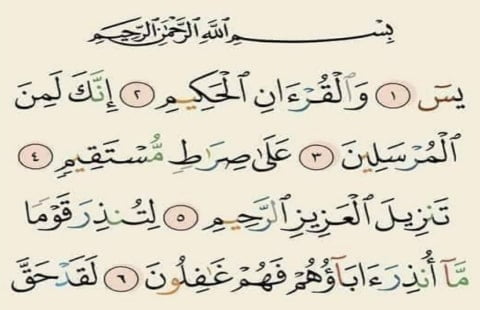 بِسْمِ اللَّهِ الرَّحْمَٰنِ الرَّحِيمِ
يسٓ ١ وَالْقُرْءَانِ الْحَكِيمِ ٢ إِنَّكَ لَمِنَ
الْمُرْسَلِينَ ٣ عَلَىٰ صِرَاطٍ مُّسْتَقِيمٍ ٤
تَنزِيلَ الْعَزِيزِ الرَّحِيمِ ٥ لِتُنذِرَ قَوْمًا
مَّآ أُنذِرَ ءَابَآؤُهُمْ فَهُمْ غَٰفِلُونَ ٦ لَقَدْ حَقَّ